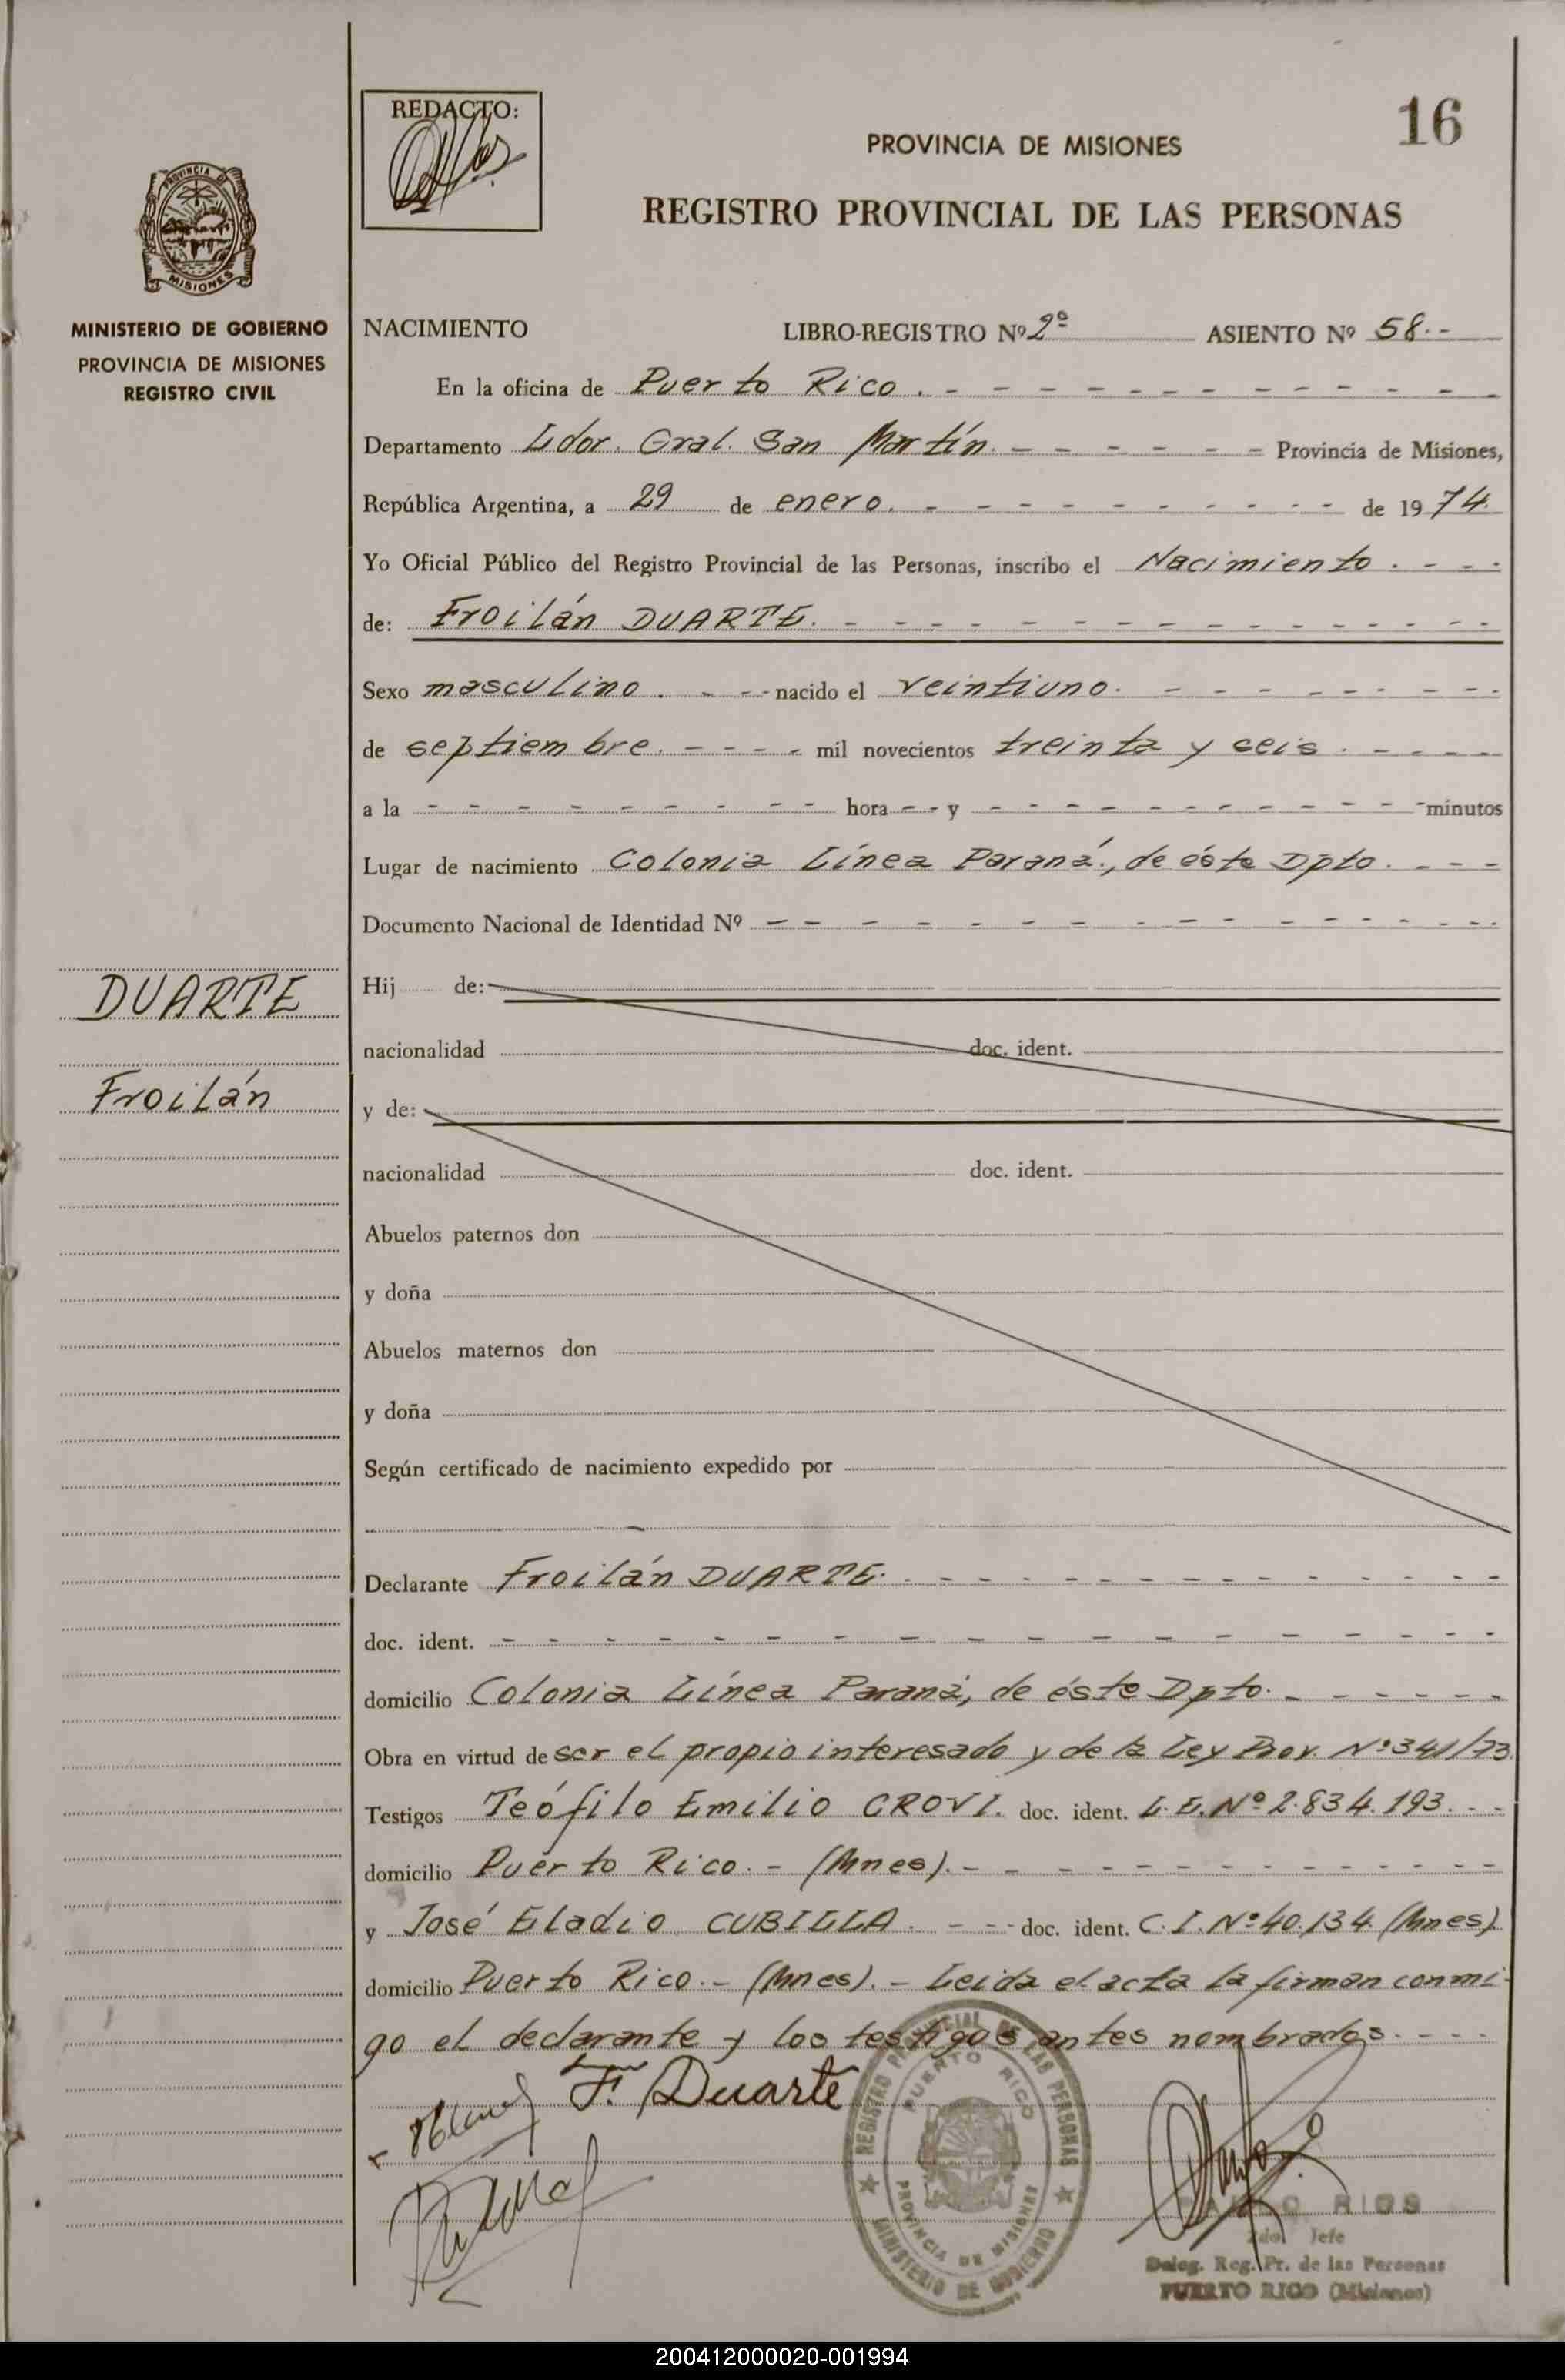 16
REDACTO:
PROVINCIA DE MISIONES
REGISTRO PROVINCIAL DE LAS PERSONAS
PROVINCIA DE
MISIONES
MINISTERIO DE GOBIERNO
PROVINCIA DE MISIONES
REGISTRO CIVIL
DUARTE
Froilán
NACIMIENTO LIBRO-REGISTRO Nº 2º ASIENTO Nº 58.-
En la oficina de Puerto Rico. - - - - - - - - - - - - -
Departamento Ldor. Gral. San Martín. - - - - - - Provincia de Misiones,
República Argentina, a 29 de enero. - - - - - - - - - - de 1974.
Yo Oficial Público del Registro Provincial de las Personas, inscribo el Nacimiento. - - -
de: Froilán DUARTE. - - - - - - - - - - - - - - -
Sexo masculino. - - - nacido el veintiuno. - - - - - - - - -
de septiembre. - - - - mil novecientos treinta y seis. - - - -
a la - - - - - - - - - hora - - y - - - - - - - - - - - - minutos
Lugar de nacimiento Colonia Línea Paraná., de éste Dpto. - - -
Documento Nacional de Identidad Nº - - - - - - - - - - - - - - - -
Hij de:
nacionalidad doc. ident.
y de:
nacionalidad doc. ident.
Abuelos paternos don
y doña
Abuelos maternos don
y doña
Según certificado de nacimiento expedido por
Declarante Froilán DUARTE. - - - - - - - - - - - - - -
doc. ident. - - - - - - - - - - - - - - - - - - -
domicilio Colonia Línea Paraná, de éste Dpto. - - - - - -
Obra en virtud de ser el propio interesado y de la Ley Prov. Nº 341/73.
Testigos Teófilo Emilio CROVI. doc. ident. L.E. Nº 2.834.193. - -
domicilio Puerto Rico. - (Mnes). - - - - - - - - - - - - -
y José Eladio CUBILLA. - - - doc. ident. C.I. Nº 40.134 (Mnes)
domicilio Puerto Rico. - (Mnes). - Leida el acta la firman conmi-
go el declarante y los testigos antes nombrados. - - -
F. Duarte
REGISTRO PROVINCIAL DE LAS PERSONAS
PUERTO RICO
PROVINCIA DE MISIONES
MINISTERIO DE GOBIERNO
RIOS
2do. Jefe
Deleg. Reg. Pr. de las Personas
PUERTO RICO (Misiones)
200412000020-001994